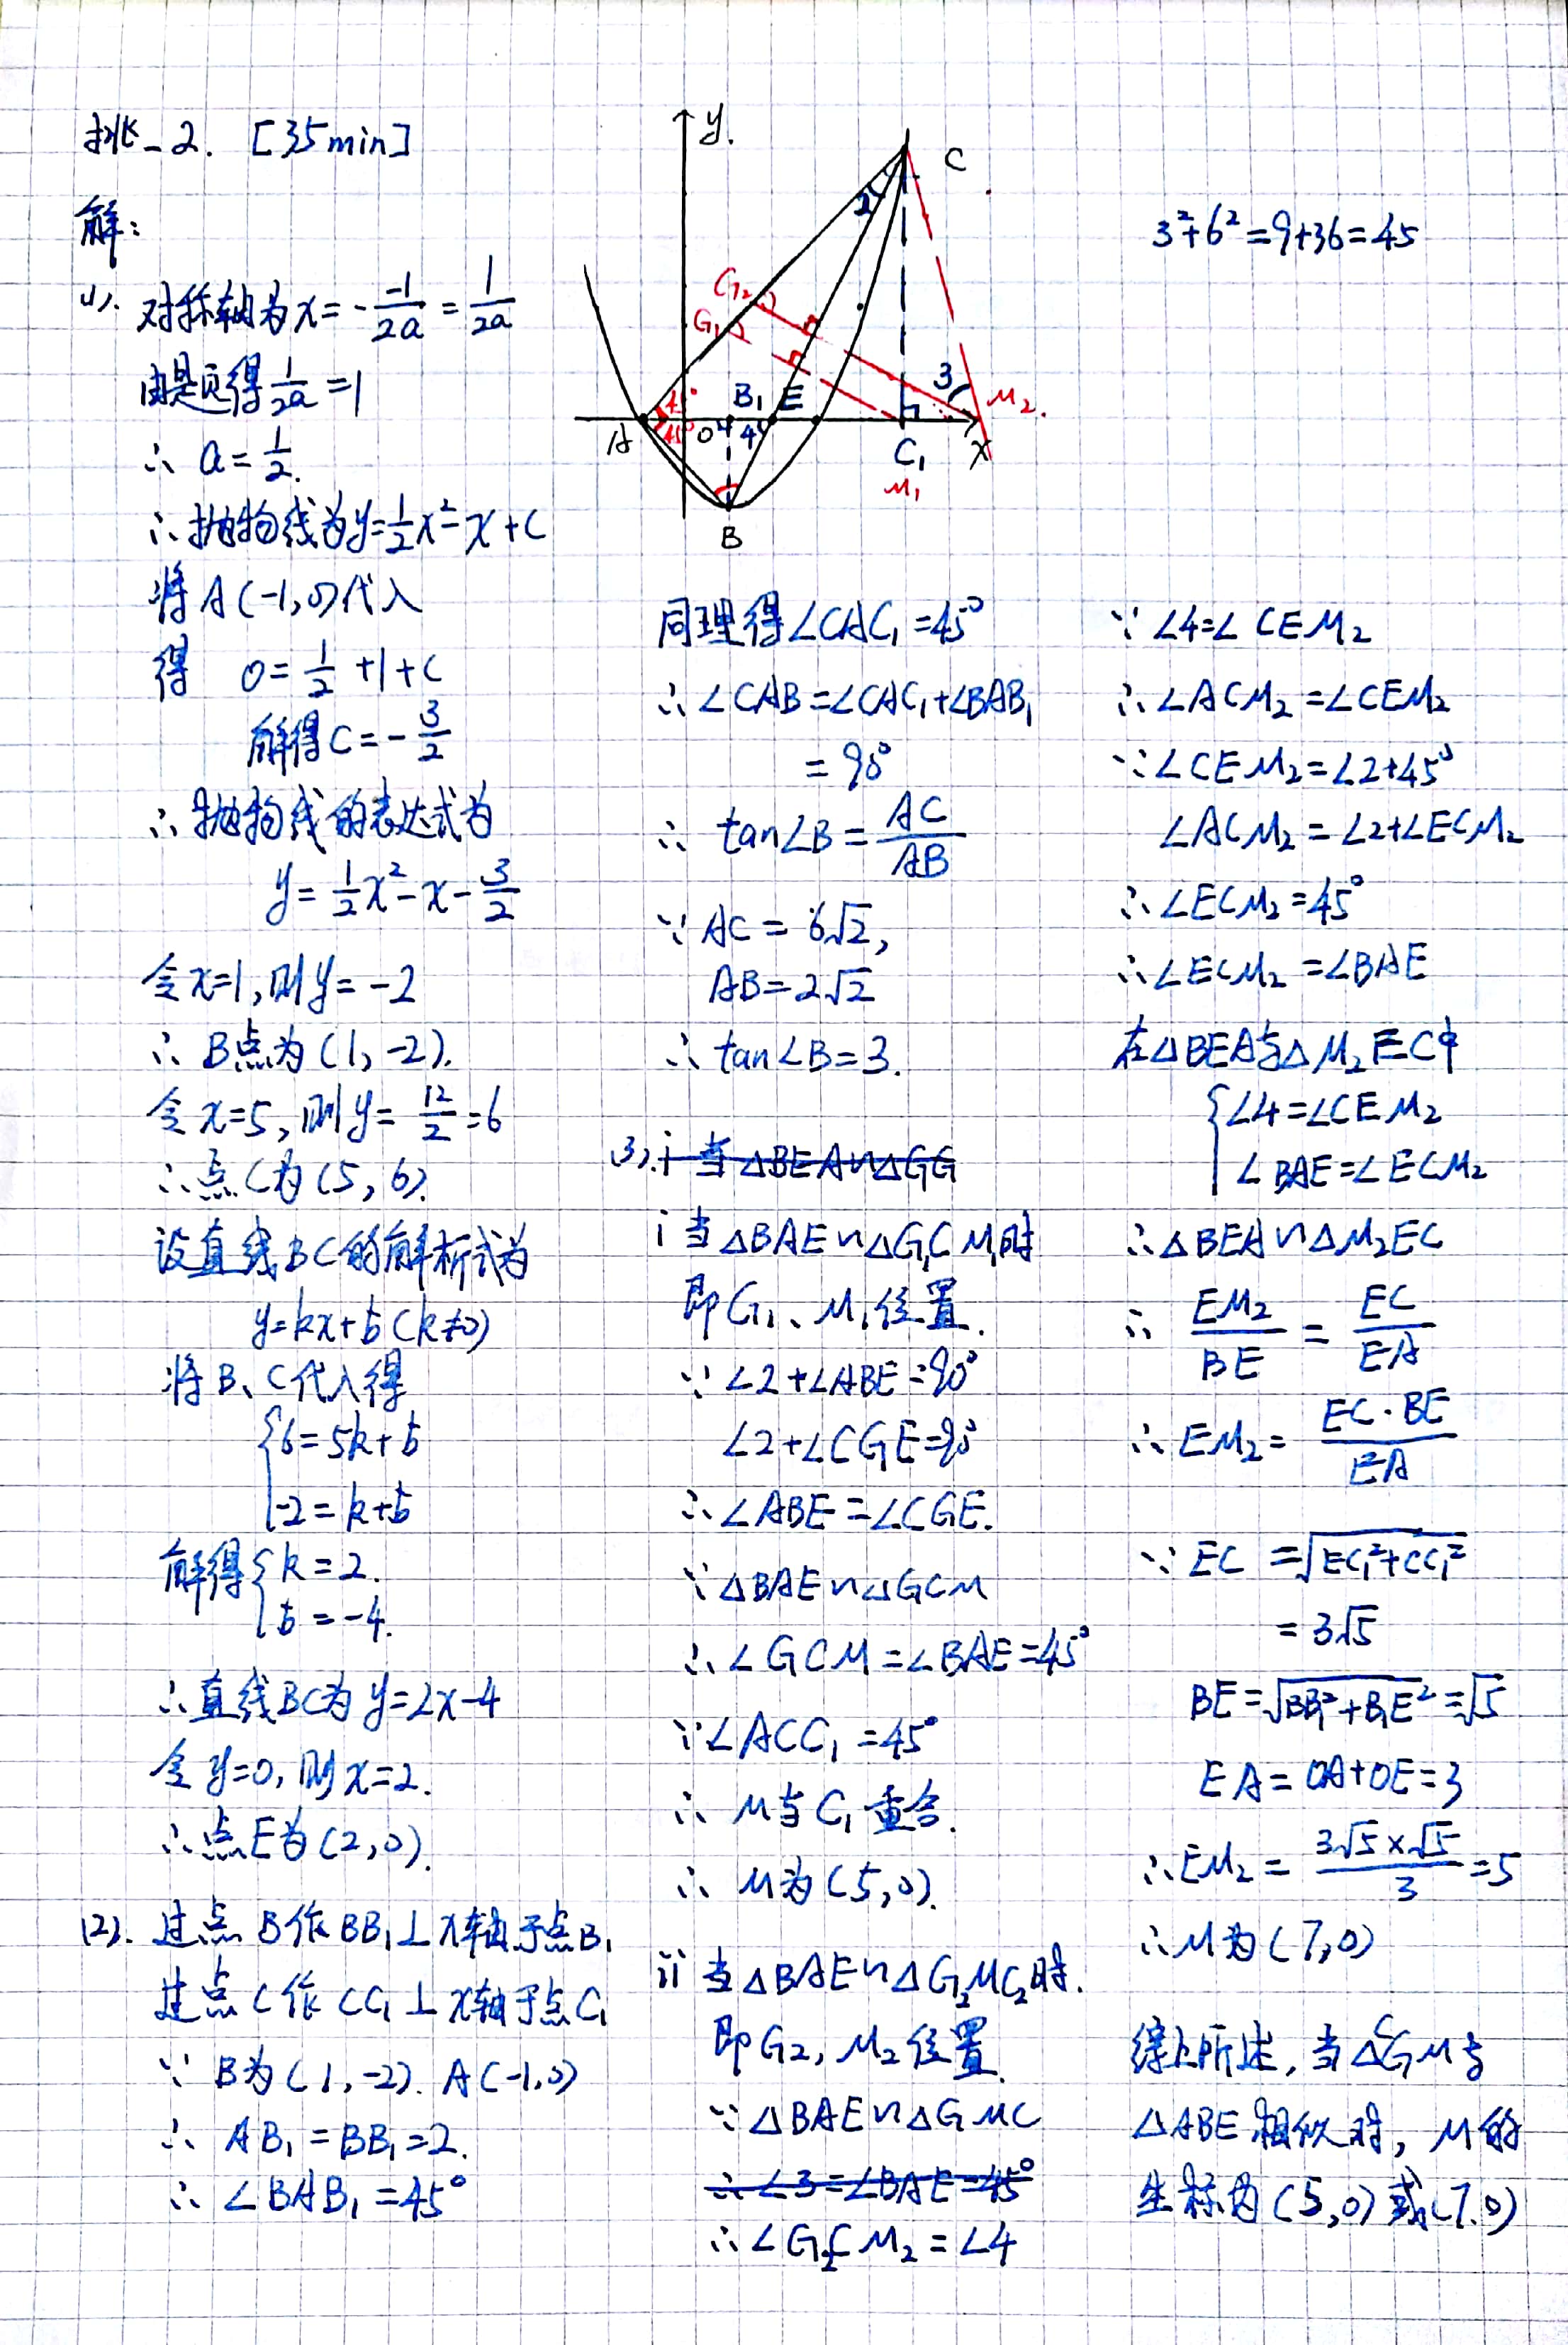 挑-2. [35min]
解:
(1). 对称轴为x=-\frac{-1}{2a}=\frac{1}{2a}
由题得\frac{1}{2a}=1
∴ a=\frac{1}{2}.
∴抛物线为y=\frac{1}{2}x²-x+c
将A(-1,0)代入
得 0=\frac{1}{2}+1+c
解得c=-\frac{3}{2}
∴抛物线的表达式为
y=\frac{1}{2}x²-x-\frac{3}{2}
令x=1,则y=-2
∴ B点为(1,-2).
令x=5,则y=\frac{12}{2}=6
∴点C为(5,6).
设直线BC的解析式为
y=kx+b(k≠0)
将B、C代入得
{6=5k+b
-2=k+b
解得{k=2.
b=-4.
∴直线BC为y=2x-4
令y=0,则x=2.
∴点E为(2,0).
(2). 过点B作BB₁⊥x轴于点B₁
过点C作CC₁⊥x轴于点C₁
∵ B为(1,-2). A(-1,0)
∴ AB₁=BB₁=2.
∴ ∠BAB₁=45°
y.
C
2
G₂
G₁
45°
45°
B₁
E
3
M₂.
A
O
4
C₁
x
M₁
B
3²+6²=9+36=45
同理得∠CAC₁=45°
∴∠CAB=∠CAC₁+∠BAB₁
=90°
∴ tan∠B=\frac{AC}{AB}
∵ AC=6√2,
AB=2√2
∴ tan∠B=3.
(3). i 当△BEA∽△GG
i 当△BAE∽△G₁CM₁时
即G₁、M₁位置.
∵ ∠2+∠ABE=90°
∠2+∠CGE=90°
∴∠ABE=∠CGE.
∵△BAE∽△GCM
∴∠GCM=∠BAE=45°
∵∠ACC₁=45°
∴ M与C₁重合.
∴ M为(5,0).
ii 当△BAE∽△G₂MC₂时.
即G₂, M₂位置.
∵△BAE∽△GMC
∴∠3=∠BAE=45°
∴∠G₂CM₂=∠4
∵ ∠4=∠CEM₂
∴∠ACM₂=∠CEM₂
∵∠CEM₂=∠2+45°
∠ACM₂=∠2+∠ECM₂
∴∠ECM₂=45°
∴∠ECM₂=∠BAE
在△BEA与△M₂EC中
{∠4=∠CEM₂
∠BAE=∠ECM₂
∴△BEA∽△M₂EC
∴ \frac{EM₂}{BE}=\frac{EC}{EA}
∴EM₂=\frac{EC·BE}{EA}
∵ EC=√(EC₁²+CC₁²)
=3√5
BE=√(BB₁²+B₁E²)=√5
EA=OA+OE=3
∴EM₂=\frac{3√5×√5}{3}=5
∴M为(7,0)
综上所述,当△CGM与
△ABE相似时, M的
坐标为(5,0)或(7,0)